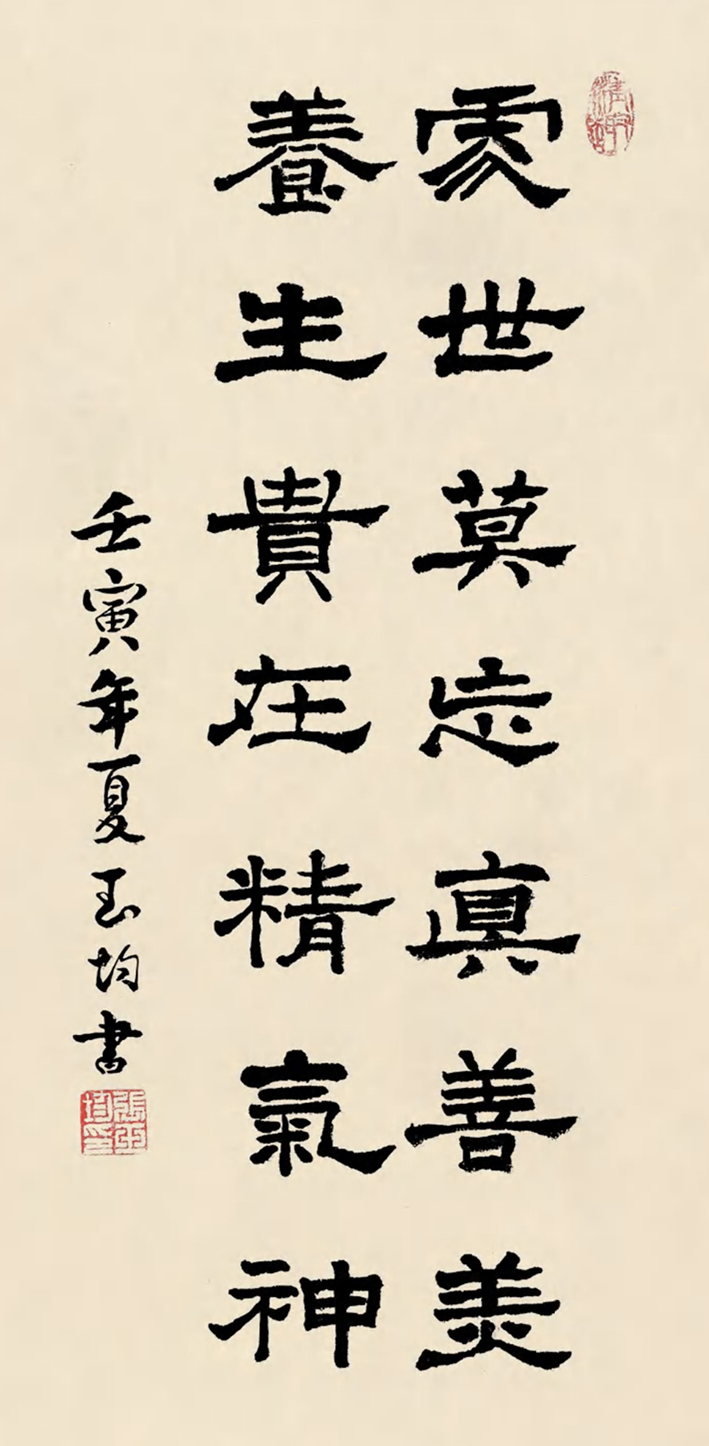 處世莫忘真善美
養生貴在精氣神
壬寅年夏玉均書
張玉均印